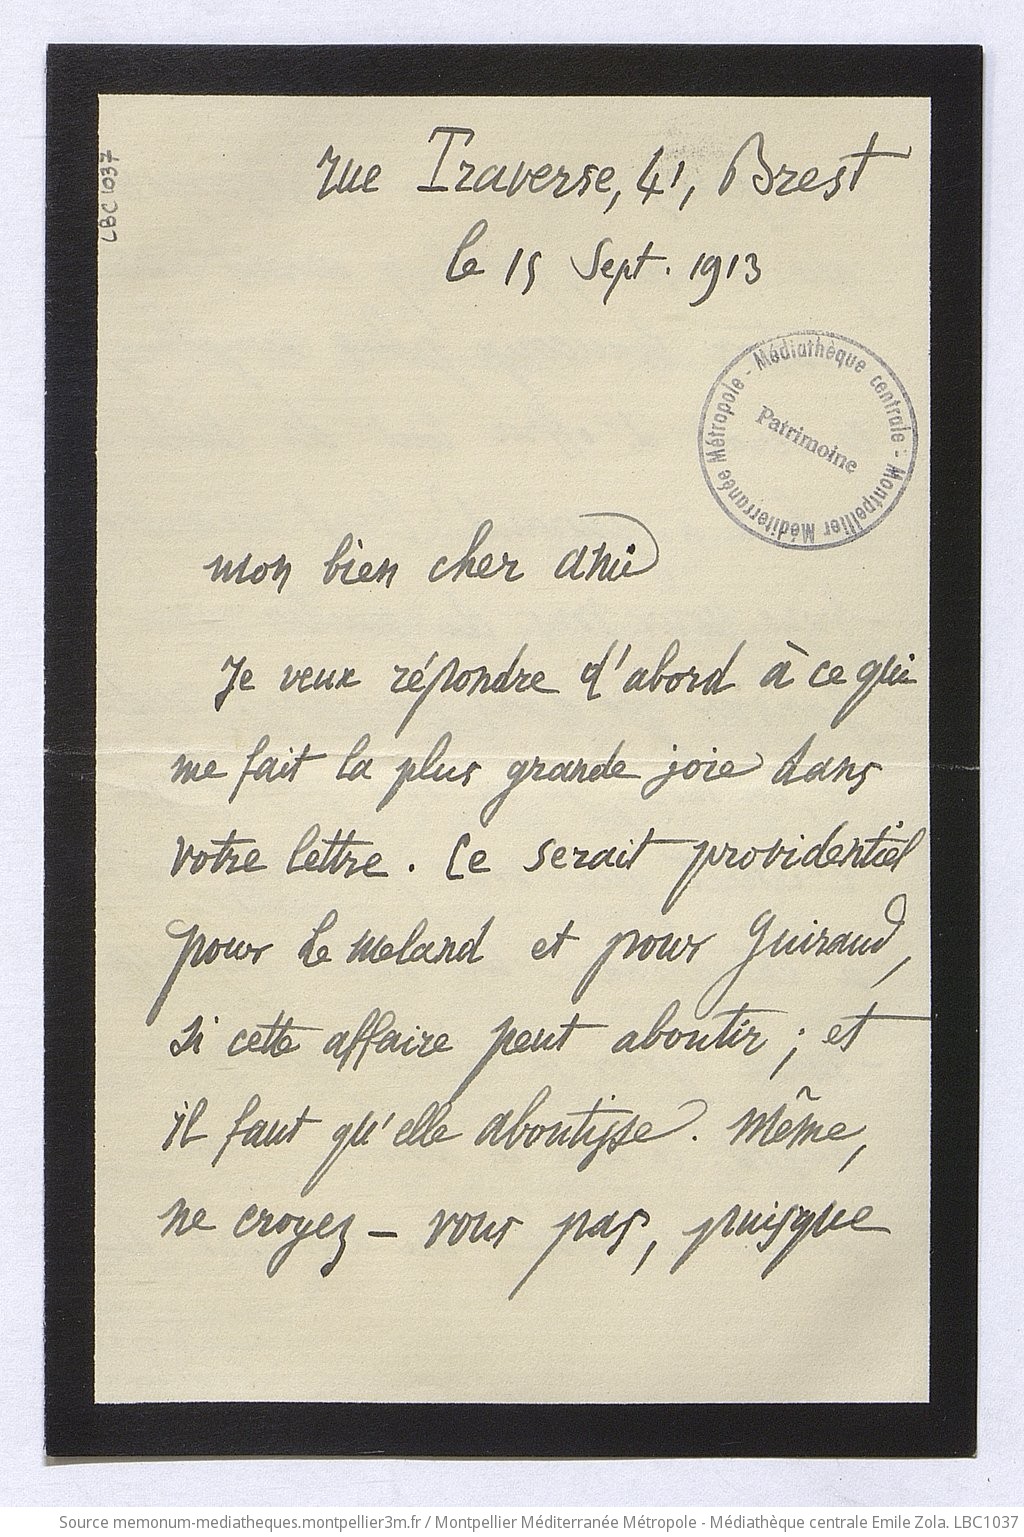 LBC 1037
rue Traverse, 41, Brest
le 15 Sept. 1913
Médiathèque centrale - Montpellier Méditerranée Métropole -
Patrimoine
mon bien cher ami
Je veux répondre d'abord à ce qui
me fait la plus grande joie dans
votre lettre. Ce serait providentiel
pour Le Meland et pour Guiraud,
si cette affaire peut aboutir ; et
il faut qu'elle aboutisse. Même,
ne croyez-vous pas, puisque
Source memonum-mediatheques.montpellier3m.fr / Montpellier Méditerranée Métropole - Médiathèque centrale Emile Zola. LBC1037